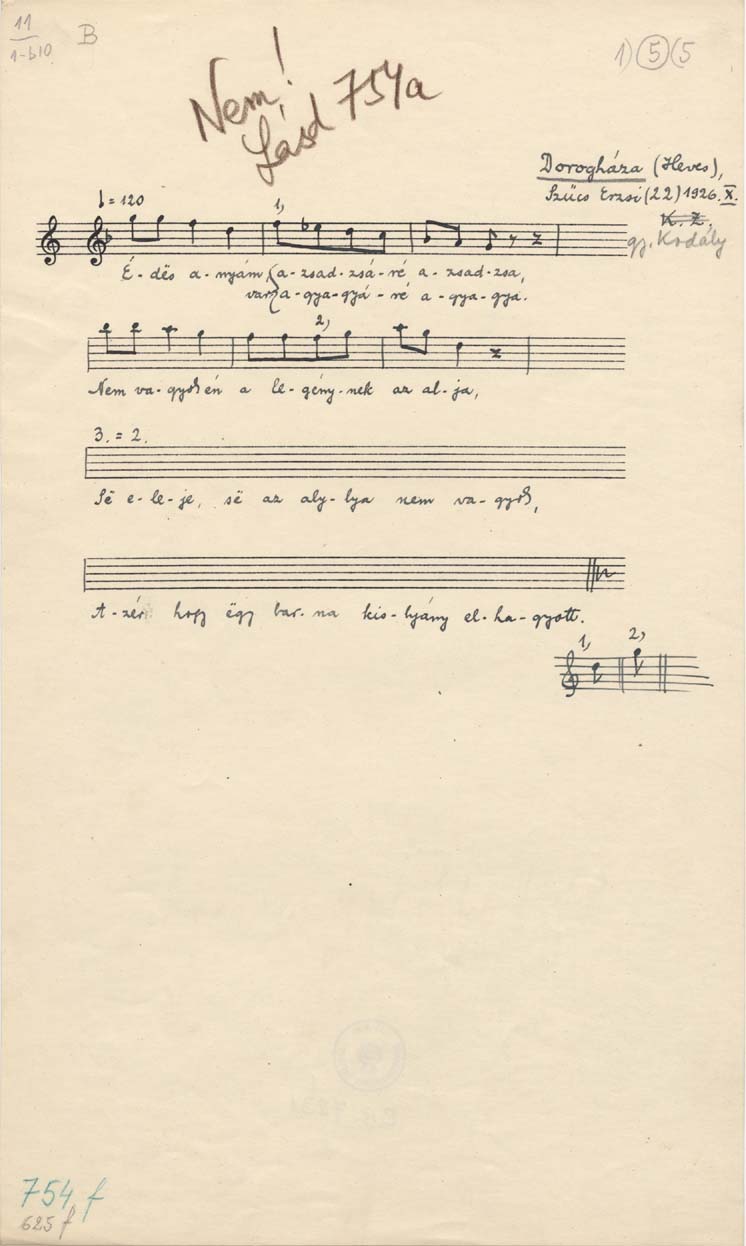 11
1-b10
B
1) 5 (5
Nem!
Lásd 754a
Dorogháza (Heves),
Szűcs Erzsi (22) 1926. X.
K. Z.
gy. Kodály
= 120
1,
É-dës a-nyám a-zsad-zsá-ré a-zsad-zsa,
var a-gya-gyá-ré a-gya-gya.
2,
Nem va-gyok én a le-gény-nek az al-ja,
3. = 2.
Së e-le-je, së az aly-lya nem va-gyok,
A-zér hogy ëgy bar-na kis-lyány el-ha-gyott.
1, 2,
754 f
625 f